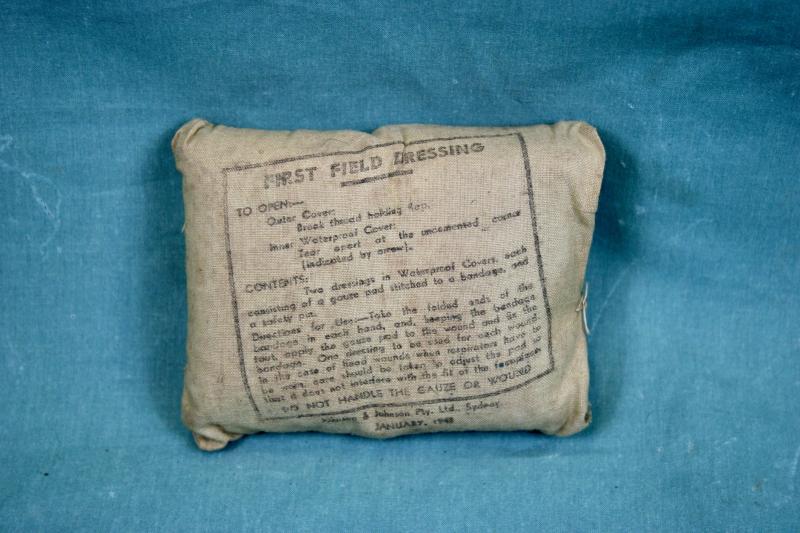 FIRST FIELD DRESSING
TO OPEN:—
Outer Cover:
Break thread holding flap.
Inner Waterproof Cover:
Tear apart at the uncemented corner
(indicated by arrow).
CONTENTS:
Two dressings in Waterproof Covers, each
consisting of a gauze pad stitched to a bandage, and
a safety pin.
Directions for Use:—Take the folded ends of the
bandage in each hand, and, keeping the bandage
taut, apply the gauze pad to the wound and fix the
bandage. One dressing to be used for each wound
In the case of head wounds when respirators have to
be worn, care should be taken to adjust the pad so
that it does not interfere with the fit of the facepiece
DO NOT HANDLE THE GAUZE OR WOUND
Johnson & Johnson Pty. Ltd., Sydney
JANUARY,